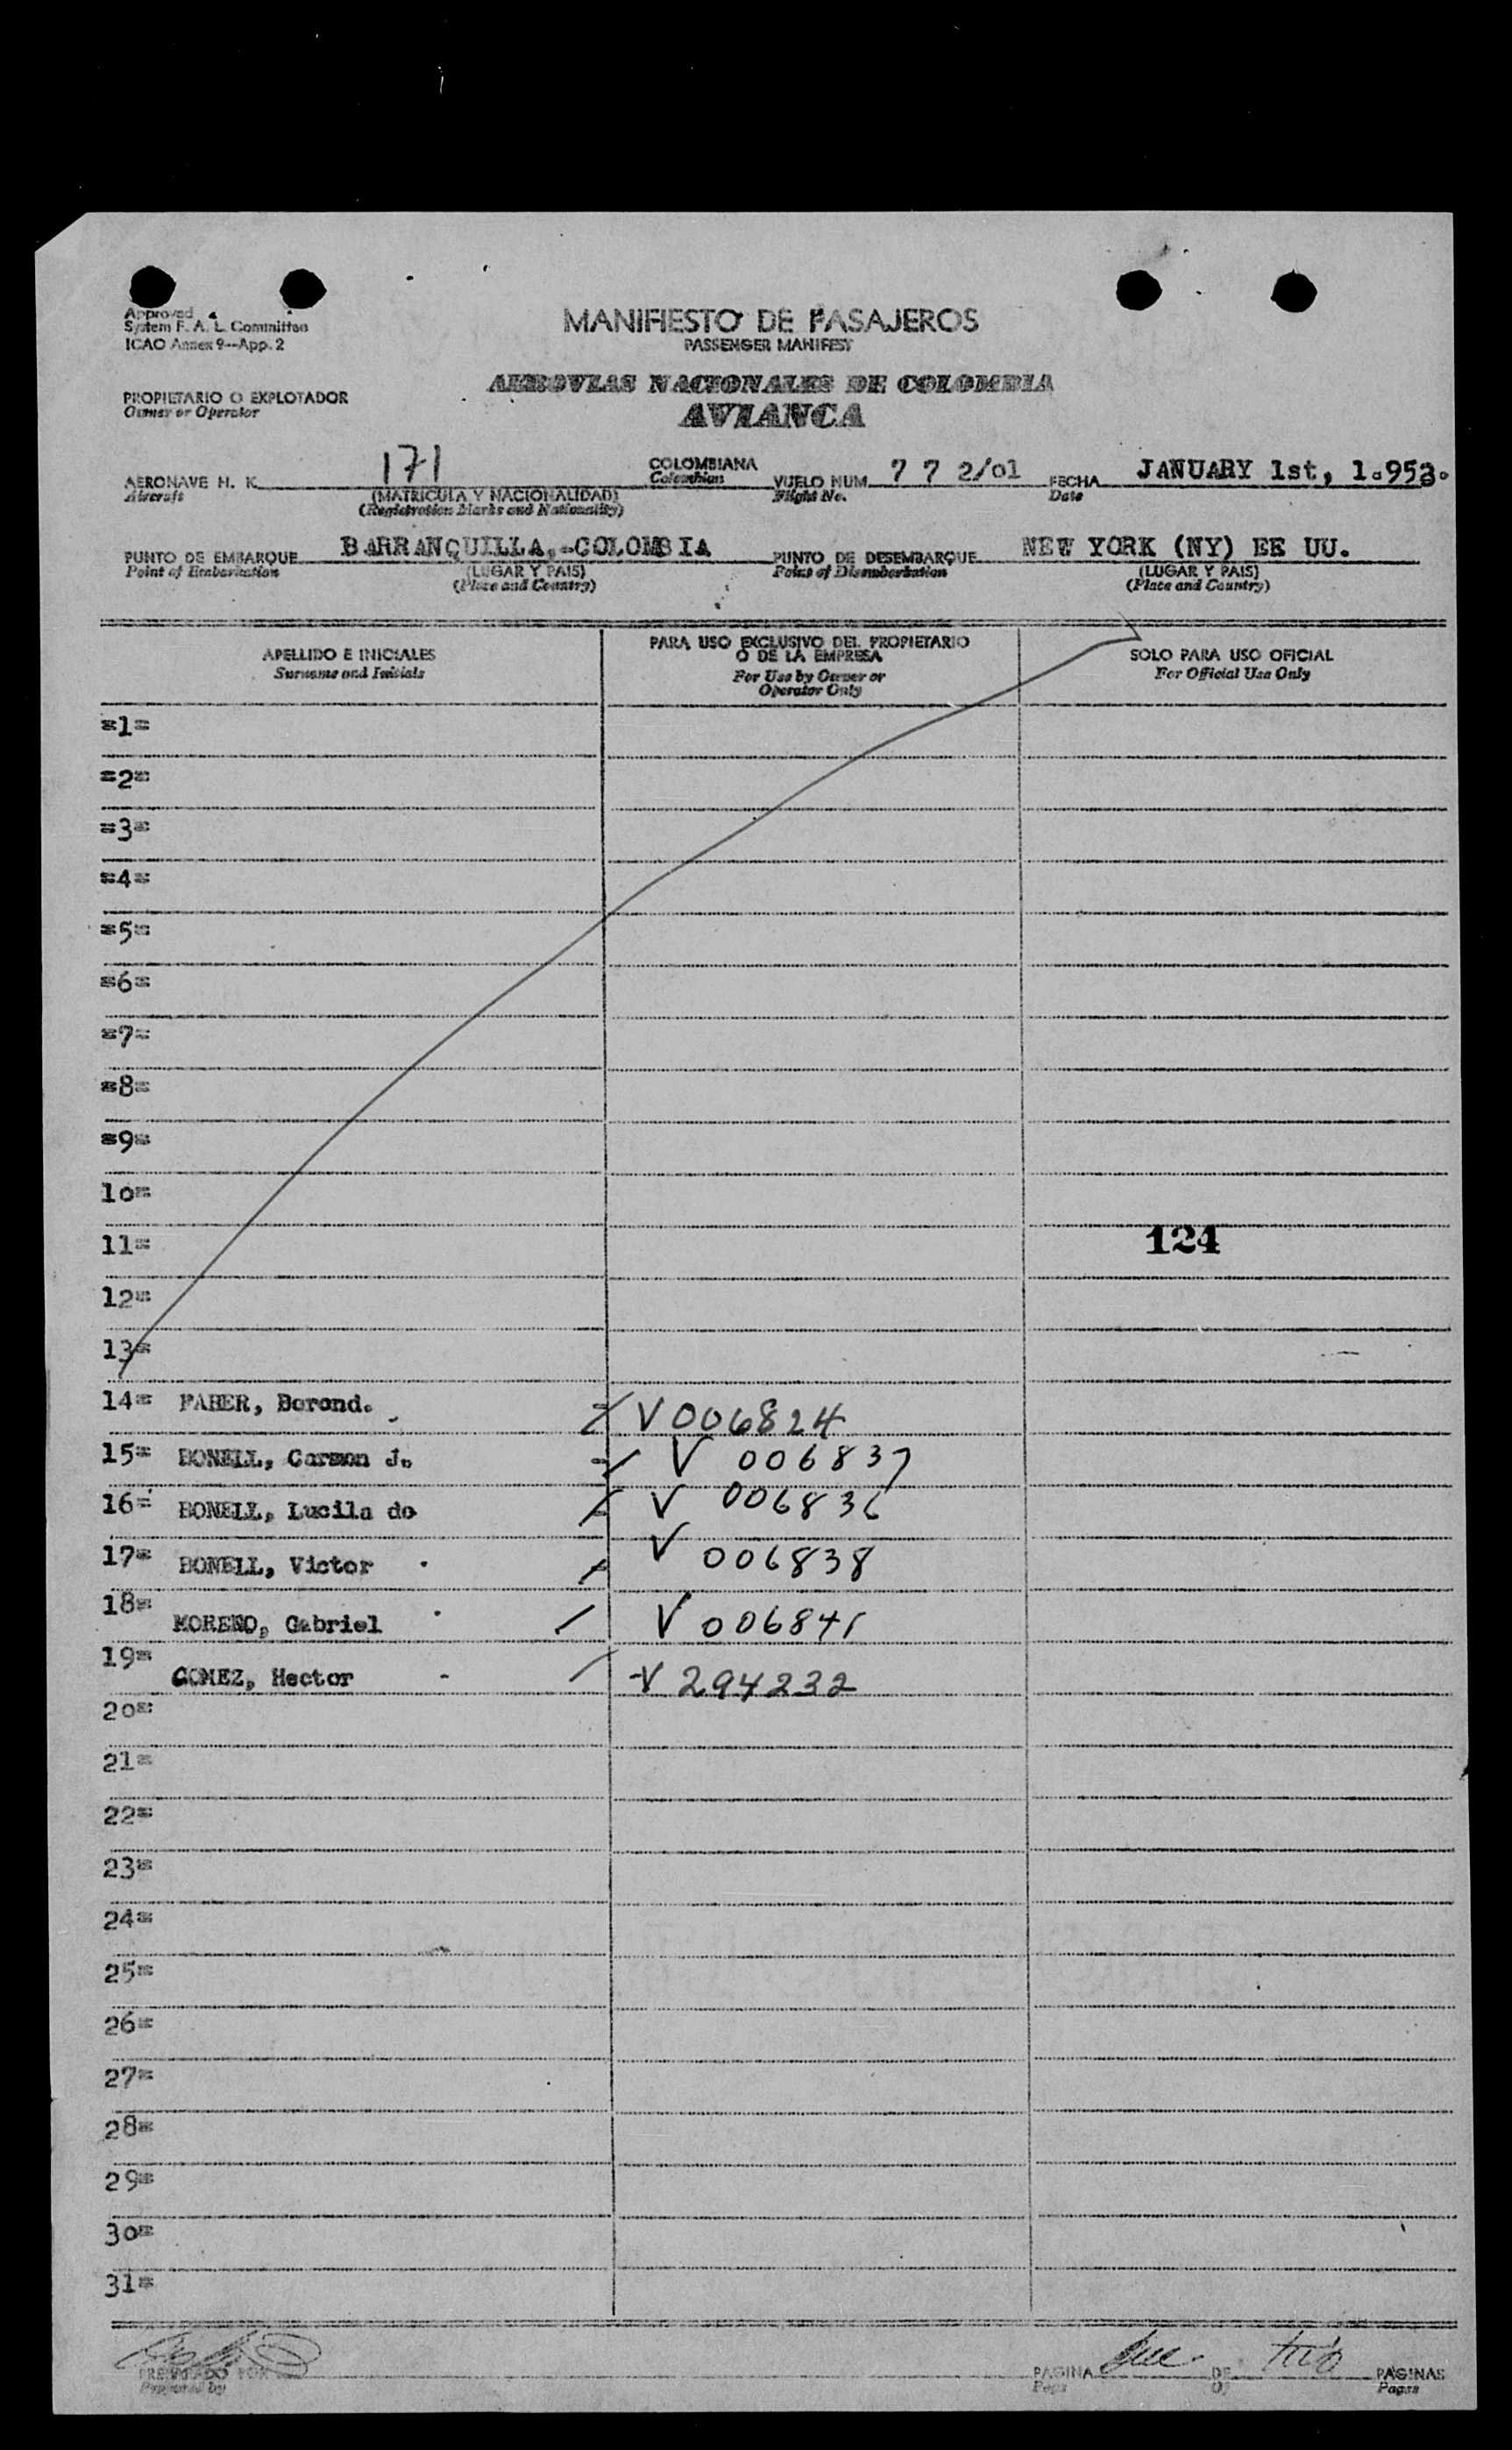 Approved
System F. A. L. Committee
ICAO Annex 9--App. 2
MANIFIESTO DE PASAJEROS
PASSENGER MANIFEST
PROPIETARIO O EXPLOTADOR
Owner or Operator
AEROVIAS NACIONALES DE COLOMBIA
AVIANCA
AERONAVE H. K. 171 COLOMBIANA VUELO NUM. 7 7 2/01 FECHA JANUARY 1st, 1.953.
Aircraft (MATRICULA Y NACIONALIDAD) Colombian Flight No. Date
(Registration Marks and Nationality)
PUNTO DE EMBARQUE BARRANQUILLA,-COLOMBIA PUNTO DE DESEMBARQUE NEW YORK (NY) EE UU.
Point of Embarkation (LUGAR Y PAIS) Point of Disembarkation (LUGAR Y PAIS)
(Place and Country) (Place and Country)
APELLIDO E INICIALES
Surname and Initials
PARA USO EXCLUSIVO DEL PROPIETARIO
O DE LA EMPRESA
For Use by Owner or
Operator Only
SOLO PARA USO OFICIAL
For Official Use Only
=1=
=2=
=3=
=4=
=5=
=6=
=7=
=8=
=9=
10=
11= 124
12=
13=
14= FABER, Dorond. V 006824
15= BONELL, Carmen J. V 006837
16= BONELL, Lucila de V 006836
17= BONELL, Victor V 006838
18= MORENO, Gabriel V 006841
19= GOMEZ, Hector V 294232
20=
21=
22=
23=
24=
25=
26=
27=
28=
29=
30=
31=
PREPARADO POR
Prepared by
PAGINA DE two PAGINAS
Page Of Pages